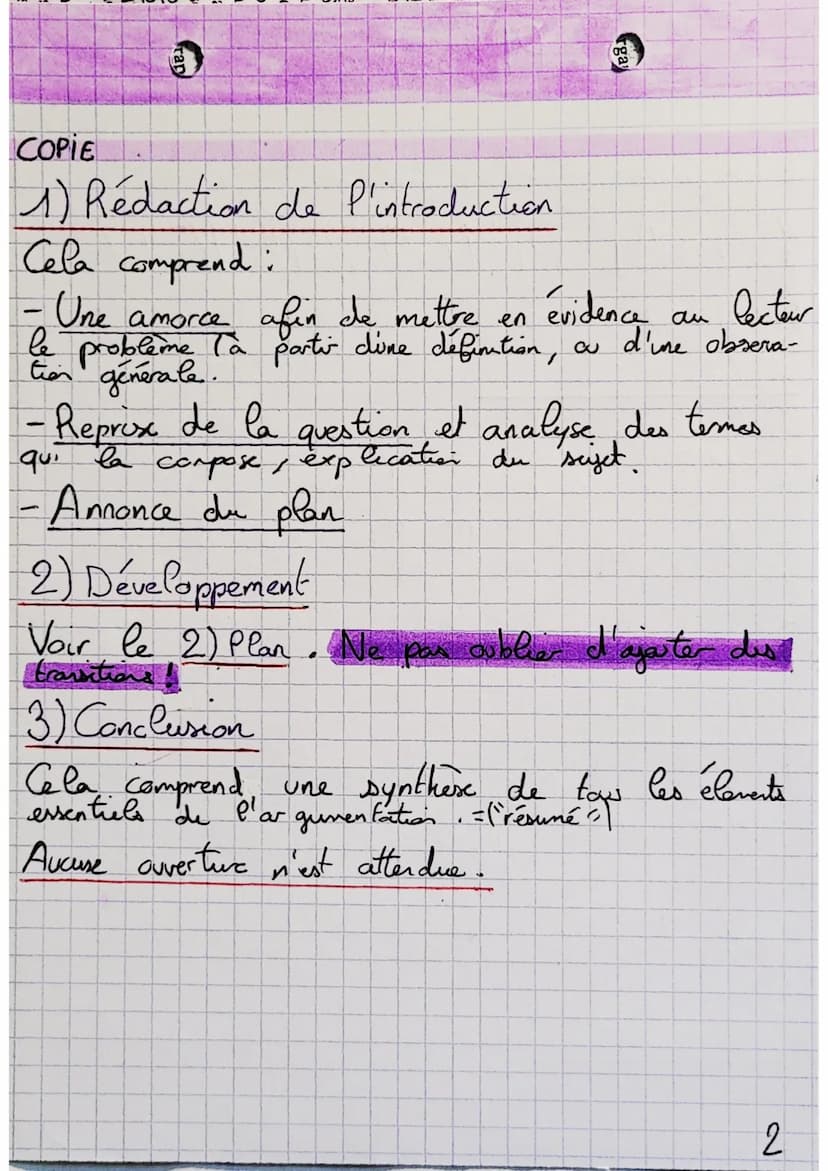 rgan
rgan
COPIE
1) Rédaction de l'introduction
Cela comprend :
- Une amorce afin de mettre en évidence au lecteur
le problème (à partir d'une définition, ou d'une observa-
tion générale.
- Reprise de la question et analyse des termes
qui la compose, explication du sujet.
- Annonce du plan
2) Développement
Voir le 2) Plan. Ne pas oublier d'ajouter des
transitions !
3) Conclusion
Cela comprend une synthèse de tous les éléments
essentiels de l'argumentation. = ("résumé")
Aucune ouverture n'est attendue.
2